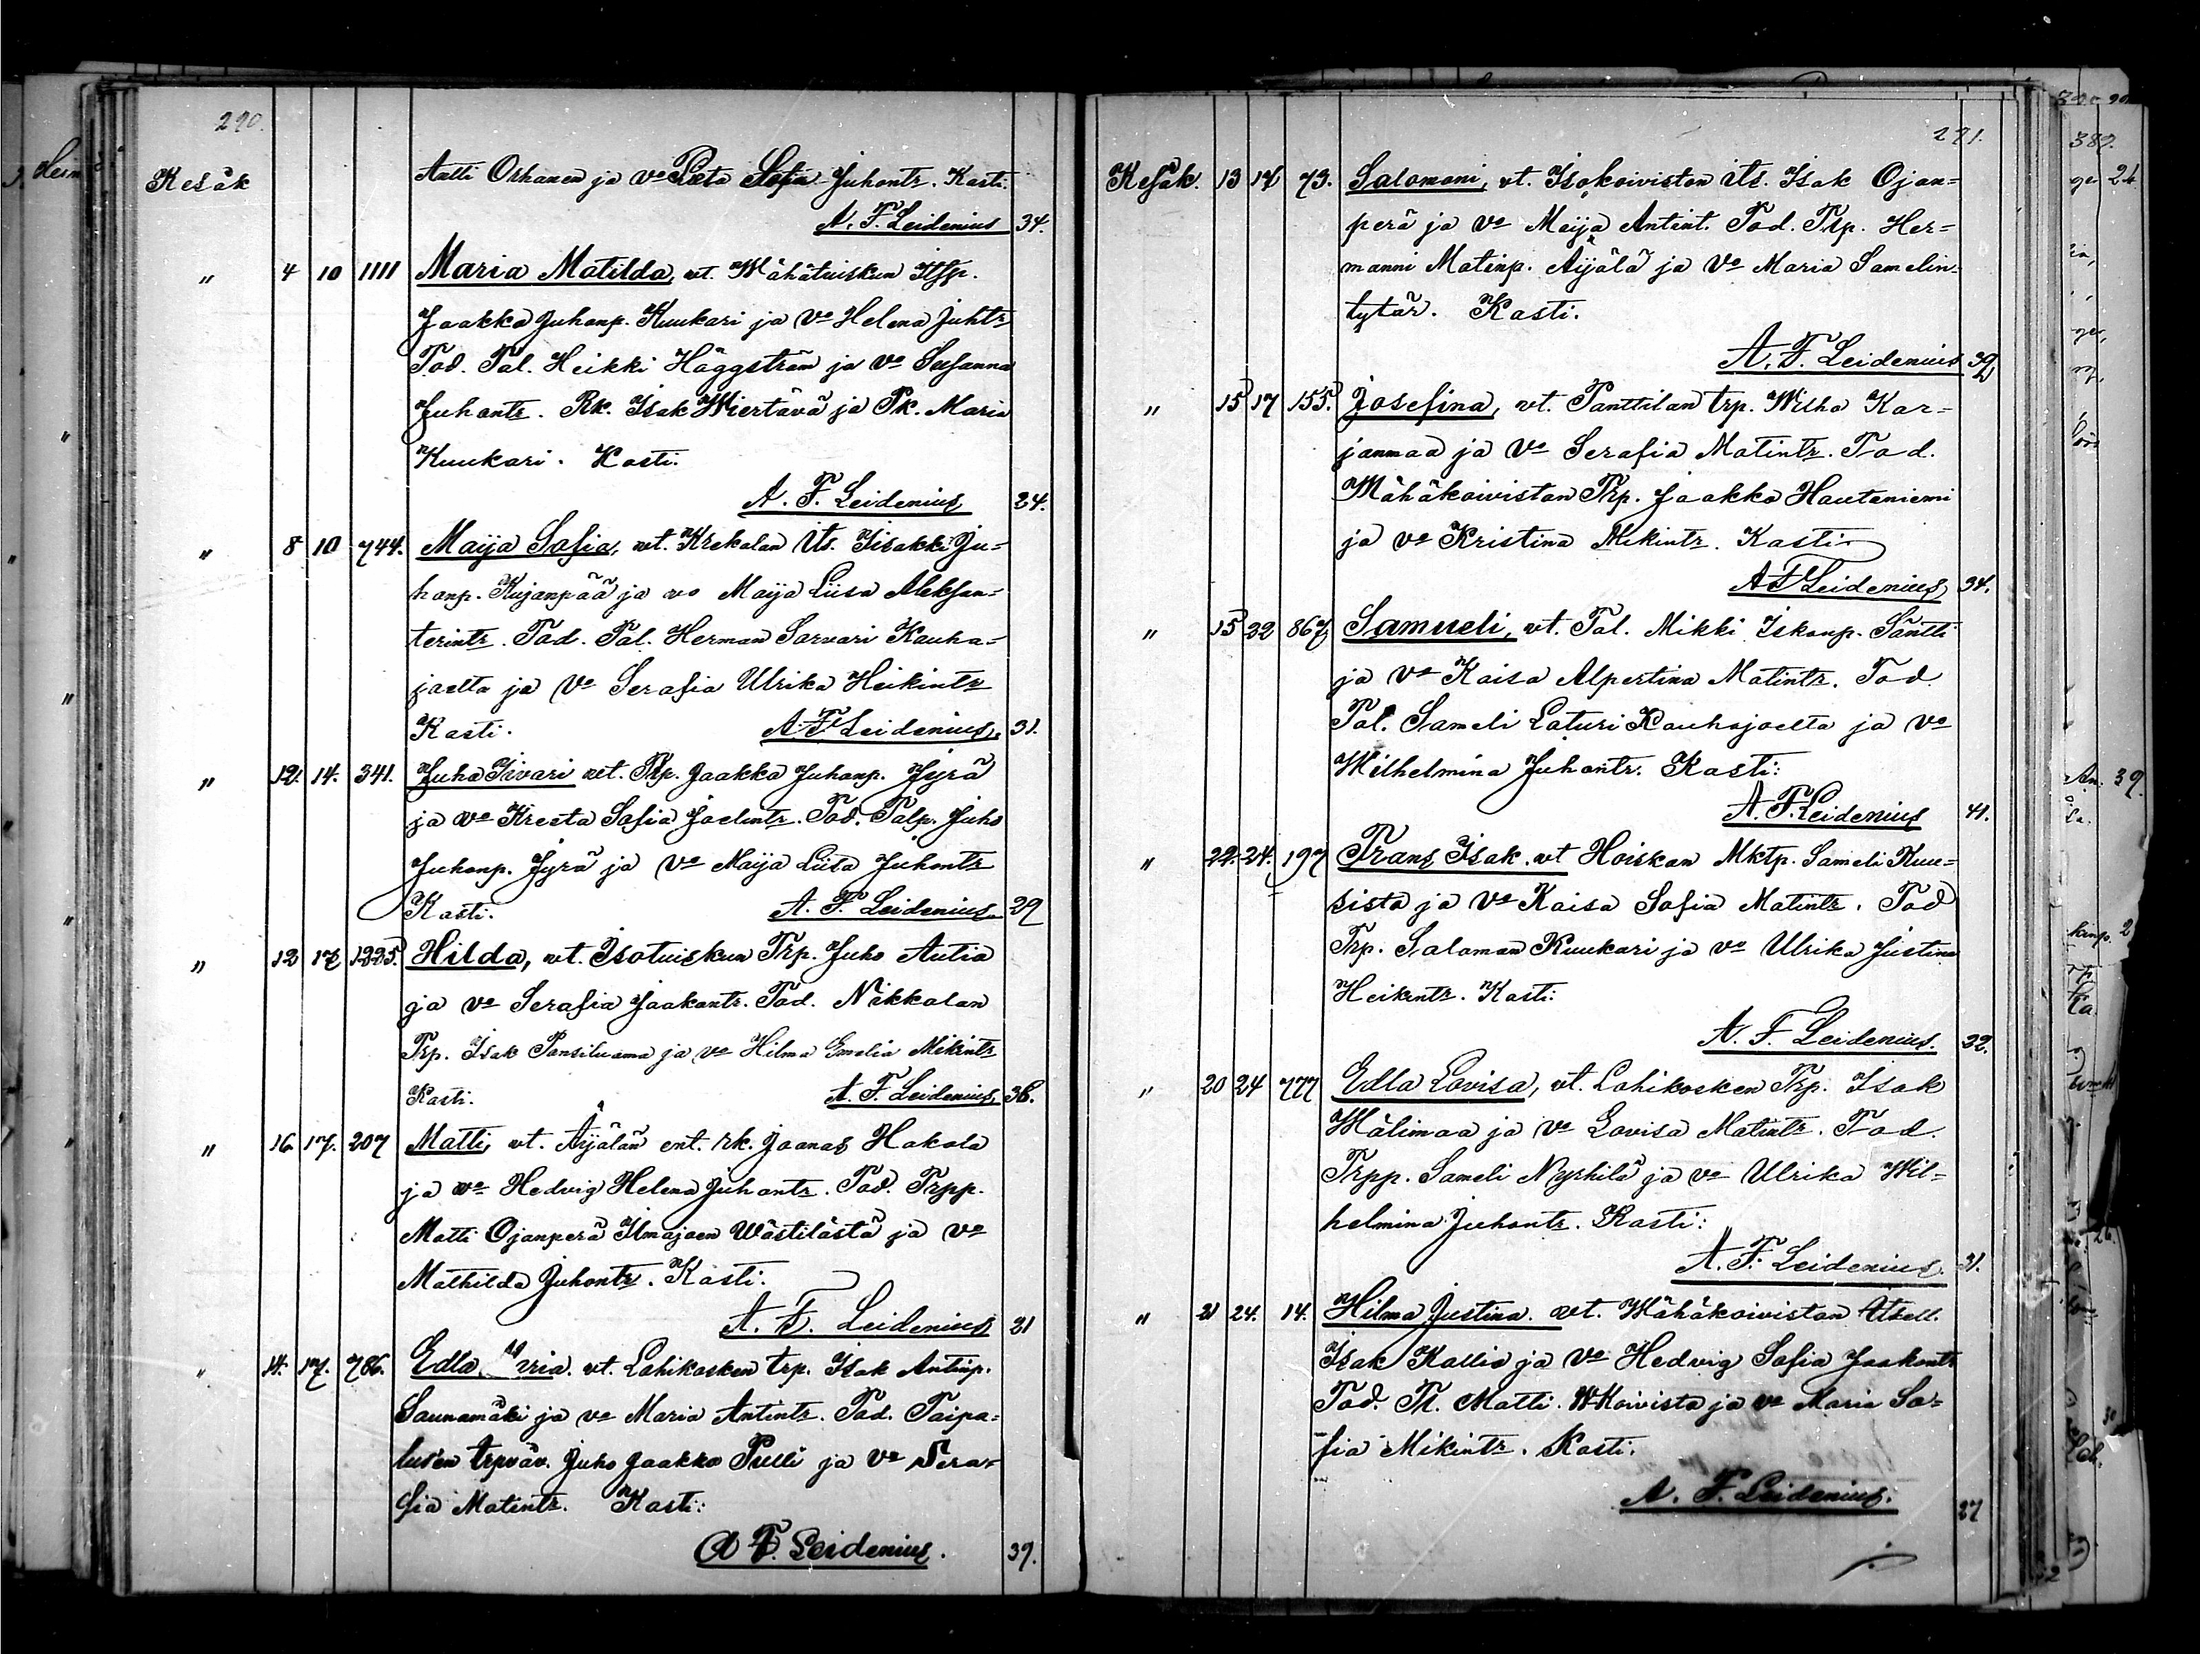 290.
Kesäk Antti Orhanen ja vo Sofia Juhontr. Kasti.
A. F. Leidenius 34.
" 4 10 1111 Maria Matilda, vt. Wähätuiskun Itsp.
Jaakko Juhonp. Kuukari ja Vo Helena Juhtr
Tod. Tal. Heikki Häggström ja vo Susanna
Juhontr. Rk. Isak Wiertävä ja Pk. Maria
Kuukari. Kasti.
A. F. Leidenius 24.
" 8 10 744. Maija Sofia, vt. Krekolan Its. Iisakki Ju=
honp. Kujanpää ja vo Maija Liisa Aleksan=
terintr. Tod. Tal. Herman Sarvari Kauha=
joelta ja Vo Serafia Ulrika Heikintr
Kasti. A. F. Leidenius. 31.
" 12. 14. 341. Juho Iivari vt. Trp. Jaakko Juhonp. Jyrä
ja vo Kreeta Sofia Joelintr. Tod. Talp. Juho
Juhonp. Jyrä ja Vo Maija Liisa Juhontr
Kasti. A. F. Leidenius. 29
" 12 17 1225. Hilda, vt. Isotuiskun Trp. Juho Autio
ja vo Serafia Jaakontr. Tod. Nikkolan
Trp. Isak Pansiluoma ja vo Hilma Emelia Mikintr
Kasti. A. F. Leidenius. 36.
" 16. 17. 207 Matti, vt. Äijälän ent. rk. Joonas Hakola
ja vo Hedvig Helena Juhontr. Tod. Trpp.
Matti Ojanperä Ilmajoen Wästilästä ja Vo
Mathilda Juhontr. Kasti.
A. F. Leidenius 21
" 14. 17. 786. Edla Maria. vt. Lohikosken trp. Isak Antinp.
Saunamäki ja vo Maria Antintr. Tod. Taipa=
lusen trpväv. Juho Jaakko Pulli ja Vo Sera=
fia Matintr. Kasti:
A F. Leidenius. 39.
291.
Kesäk. 13 17 73. Salomoni, vt. Isokoiviston Its. Isak Ojan=
perä ja Vo Maija Antint. Tod. Trp. Her=
manni Matinp. Äijälä ja Vo Maria Samelin=
tytär. Kasti.
A. F. Leidenius 39
" 15 17 155. Josefina, vt. Panttilan trp. Wilho Kar=
janmaa ja Vo Serafia Matintr. Tod.
Wähäkoiviston Trp. Jaakko Hautaniemi
ja vo Kristina Mikintr. Kasti
A F Leidenius 34.
" 15 22 867 Samueli, vt. Tal. Mikki Iskonp. Säntti
ja Vo Kaisa Alpertina Matintr. Tod.
Tal. Sameli Laturi Kauhajoelta ja Vo
Wilhelmina Juhontr. Kasti:
A. F. Leidenius 41.
" 22. 24. 197 Frans Isak. vt Hoiskan Mktp. Sameli Kuu=
sisto ja Vo Kaisa Sofia Matintr. Tod
Trp. Saloman Kuukari ja Vo Ulrika Justina
Heikintr. Kasti:
A. F. Leidenius. 32.
" 20 24 777 Edla Lovisa, vt. Lohikosken Trp. Isak
Wälimaa ja Vo Lovisa Matintr. Tod.
Trpp. Sameli Nyrhilä ja Vo Ulrika Wil=
helmina Juhontr. Kasti:
A. F. Leidenius. 31.
" 21 24. 14. Hilma Justina. vt. Wähäkoiviston Itsell.
Isak Kallio ja Vo Hedvig Sofia Jaakontr
Tod. Tl. Matti W Koivisto ja vo Maria So=
fia Mikintr. Kasti.
A. F. Leidenius. 27